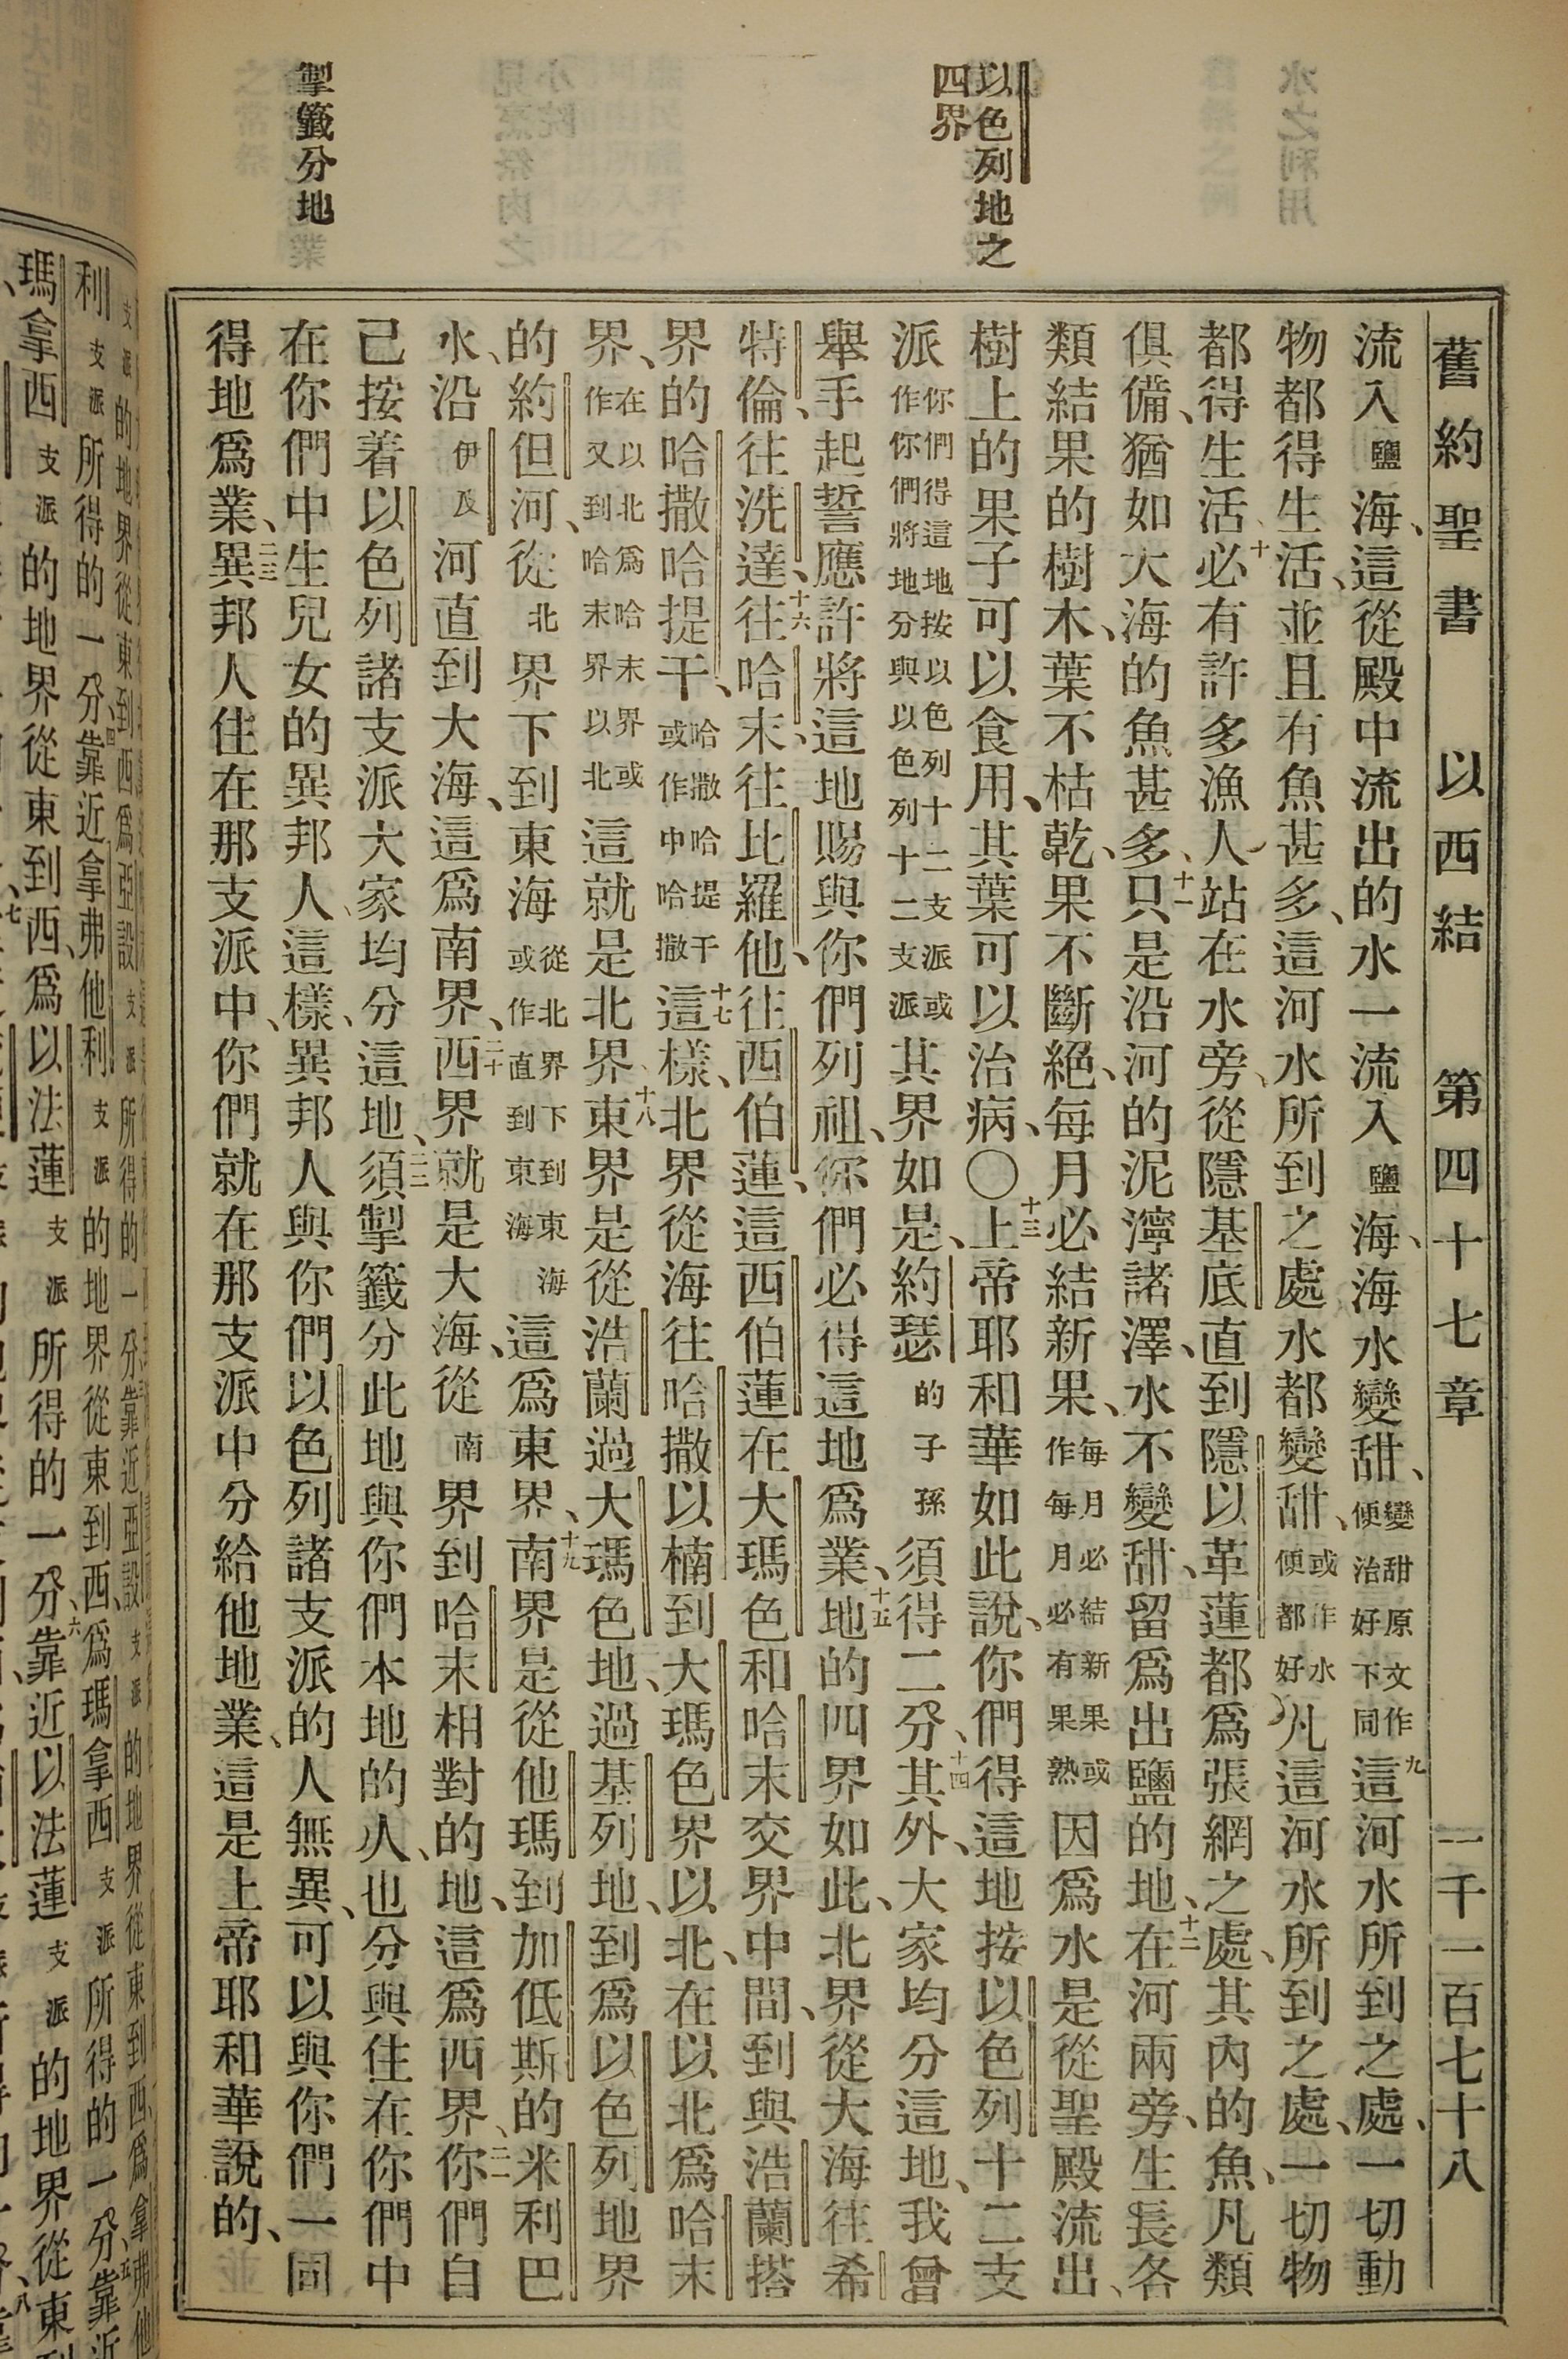 以色列地之
四界
掣籤分地
舊約聖書 以西結 第四十七章 一千一百七十八
流入鹽海、這從殿中流出的水一流入鹽海、海水變甜、變甜原文作便治好下同九這河水所到之處、一切動
物都得生活、並且有魚甚多、這河水所到之處水都變甜、或作水便都好凡這河水所到之處、一切物
都得生活、十必有許多漁人站在水旁、從隱基底直到隱以革蓮都爲張網之處、其內的魚、凡類
俱備、猶如大海的魚甚多、十一只是沿河的泥濘諸澤、水不變甜、留爲出鹽的地、十二在河兩旁、生長各
類結果的樹木、葉不枯乾、果不斷絕、每月必結新果、每月必結新果或作每月必有果熟因爲水是從聖殿流出、
樹上的果子可以食用、其葉可以治病、〇十三上帝耶和華如此說、你們得這地按以色列十二支
派你們得這地按以色列十二支派或作你們將地分與以色列十二支派其界如是、約瑟的子孫須得二分、十四其外、大家均分這地、我曾
舉手起誓應許將這地賜與你們列祖、你們必得這地爲業、十五地的四界如此、北界從大海往希
特倫、往洗達、十六往哈末、往比羅他、往西伯蓮、這西伯蓮在大瑪色和哈末交界中間、到與浩蘭搭
界的哈撒哈提干、哈撒哈提干或作中哈撒十七這樣、北界從海往哈撒以楠到大瑪色界以北、在以北爲哈末
界、在以北爲哈末界或作又到哈末界以北這就是北界、十八東界是從浩蘭過大瑪色地、過基列地、到爲以色列地界
的約但河、從北界下到東海從北界下到東海或作直到東海這爲東界、十九南界是從他瑪到加低斯的米利巴
水、沿伊及河直到大海、這爲南界、二十西界就是大海、從南界到哈末相對的地、這爲西界、二一你們自
己按着以色列諸支派大家均分這地、二二須掣籤分此地與你們本地的人、也分與住在你們中
在你們中生兒女的異邦人、這樣、異邦人與你們以色列諸支派的人無異、可以與你們一同
得地爲業、二三異邦人住在那支派中、你們就在那支派中分給他地業、這是上帝耶和華說的、
支派的地界從東到西爲亞設支派所得的一分靠近亞設支派的地界從東到西爲拿弗他
利支派所得的一分、四靠近拿弗他利支派的地界從東到西、爲瑪拿西支派所得的一分、五靠近
瑪拿西支派的地界從東到西、爲以法蓮支派所得的一分、六靠近以法蓮支派的地界從東